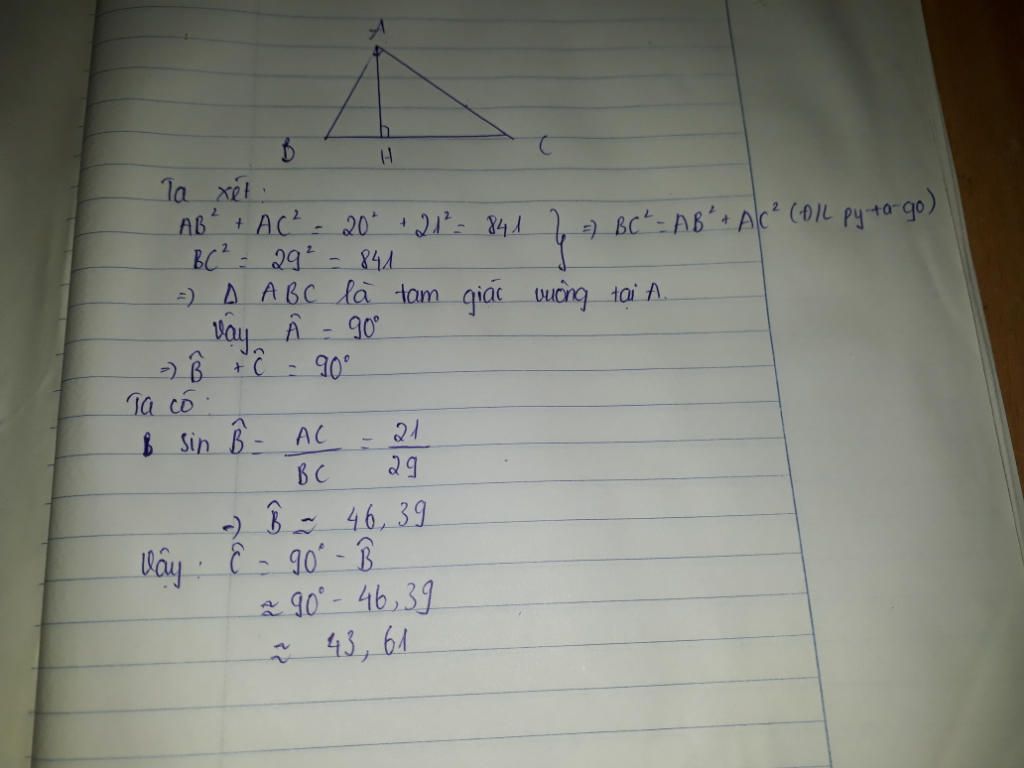 A
B H C
Ta xét:
AB² + AC² = 20² + 21² = 841 } => BC² = AB² + AC² (Đ/L py-ta-go)
BC² = 29² = 841
=> Δ ABC là tam giác vuông tại A.
Vậy Â = 90°
=> B̂ + Ĉ = 90°
Ta có:
sin B̂ = AC/BC = 21/29
=> B̂ ≈ 46,39
Vậy: Ĉ = 90° - B̂
≈ 90° - 46,39
≈ 43,61